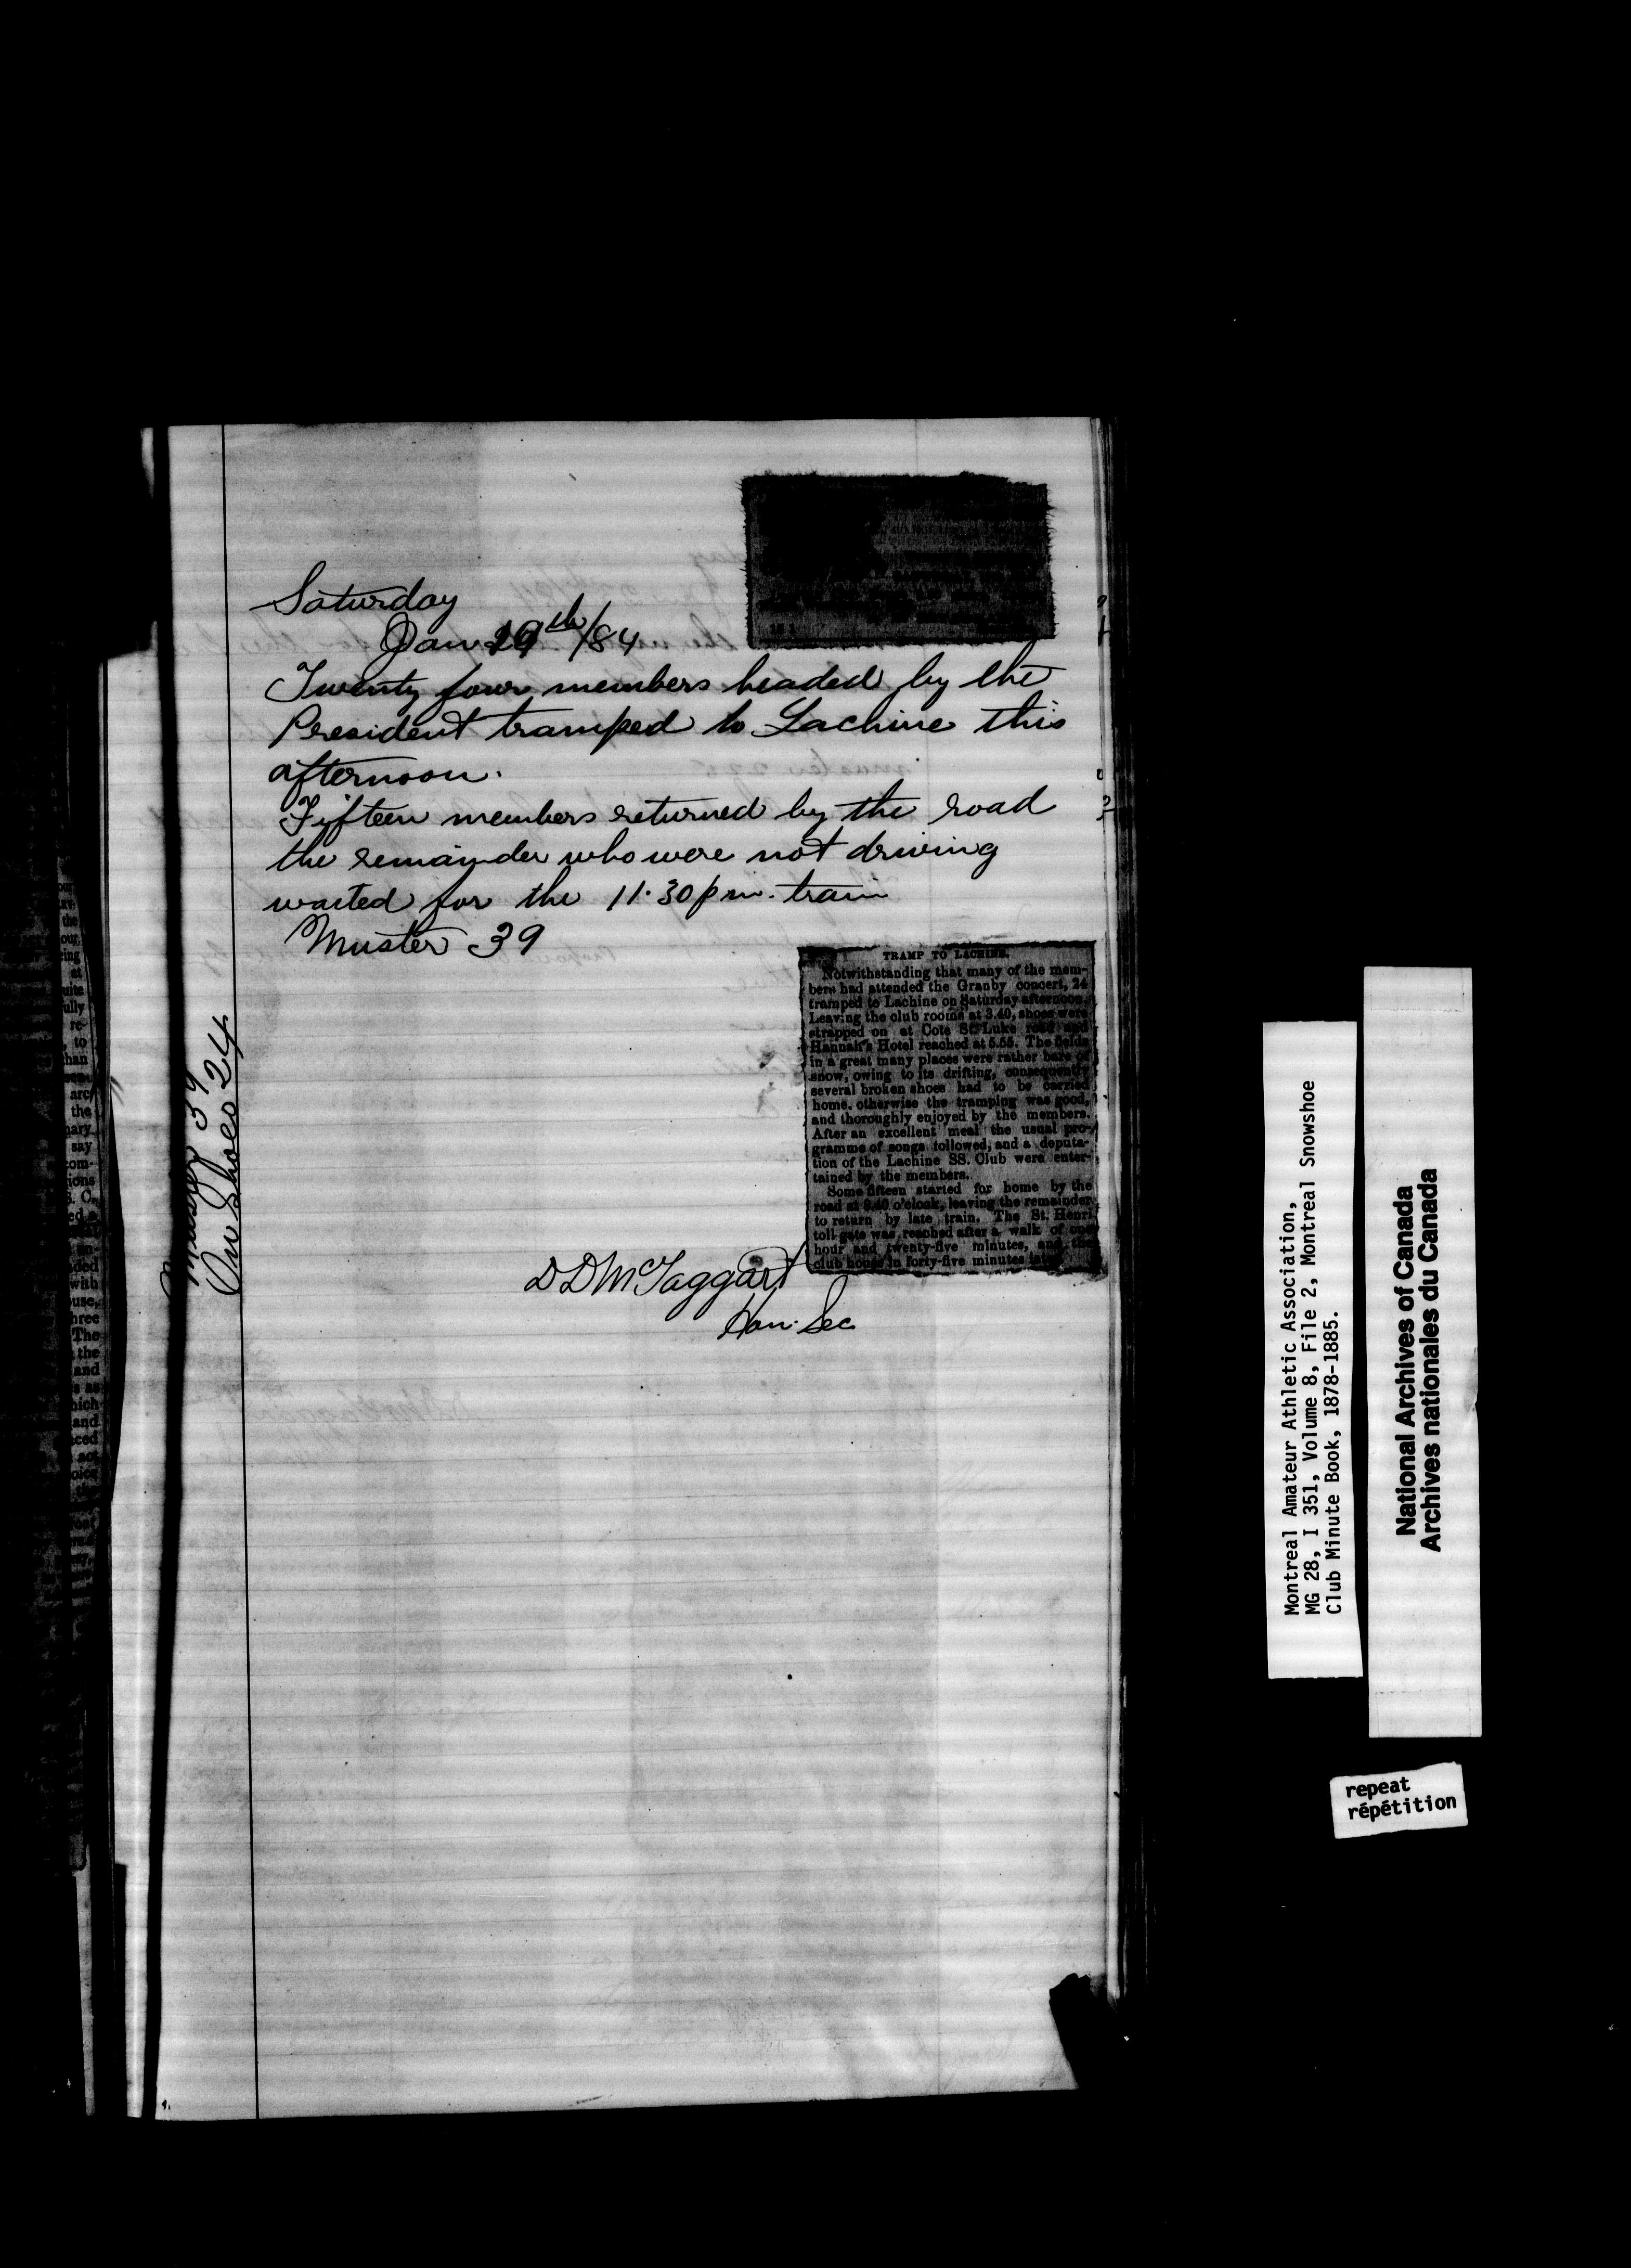 Saturday
Jan 19th/84
Twenty four members headed by the
President tramped to Lachine this
afternoon.
Fifteen members returned by the road
the remainder who were not driving
waited for the 11.30 p m. train
Muster 39
Muster 39
On Shoes 24
TRAMP TO LACHINE.
Notwithstanding that many of the mem-
bers had attended the Granby concert, 24
tramped to Lachine on Saturday afternoon.
Leaving the club rooms at 3.40, shoes were
strapped on at Cote St. Luke road and
Hannah's Hotel reached at 5.55. The fields
in a great many places were rather bare of
snow, owing to its drifting, consequently
several broken shoes had to be carried
home, otherwise the tramping was good,
and thoroughly enjoyed by the members.
After an excellent meal the usual pro-
gramme of songs followed, and a deputa-
tion of the Lachine SS. Club were enter-
tained by the members.
Some fifteen started for home by the
road at 9.40 o'clock, leaving the remainder
to return by late train. The St. Henri
toll gate was reached after a walk of one
hour and twenty-five minutes, and the
club house in forty-five minutes
D D McTaggart
Hon. Sec
Montreal Amateur Athletic Association,
MG 28, I 351, Volume 8, File 2, Montreal Snowshoe
Club Minute Book, 1878-1885.
National Archives of Canada
Archives nationales du Canada
repeat
répétition